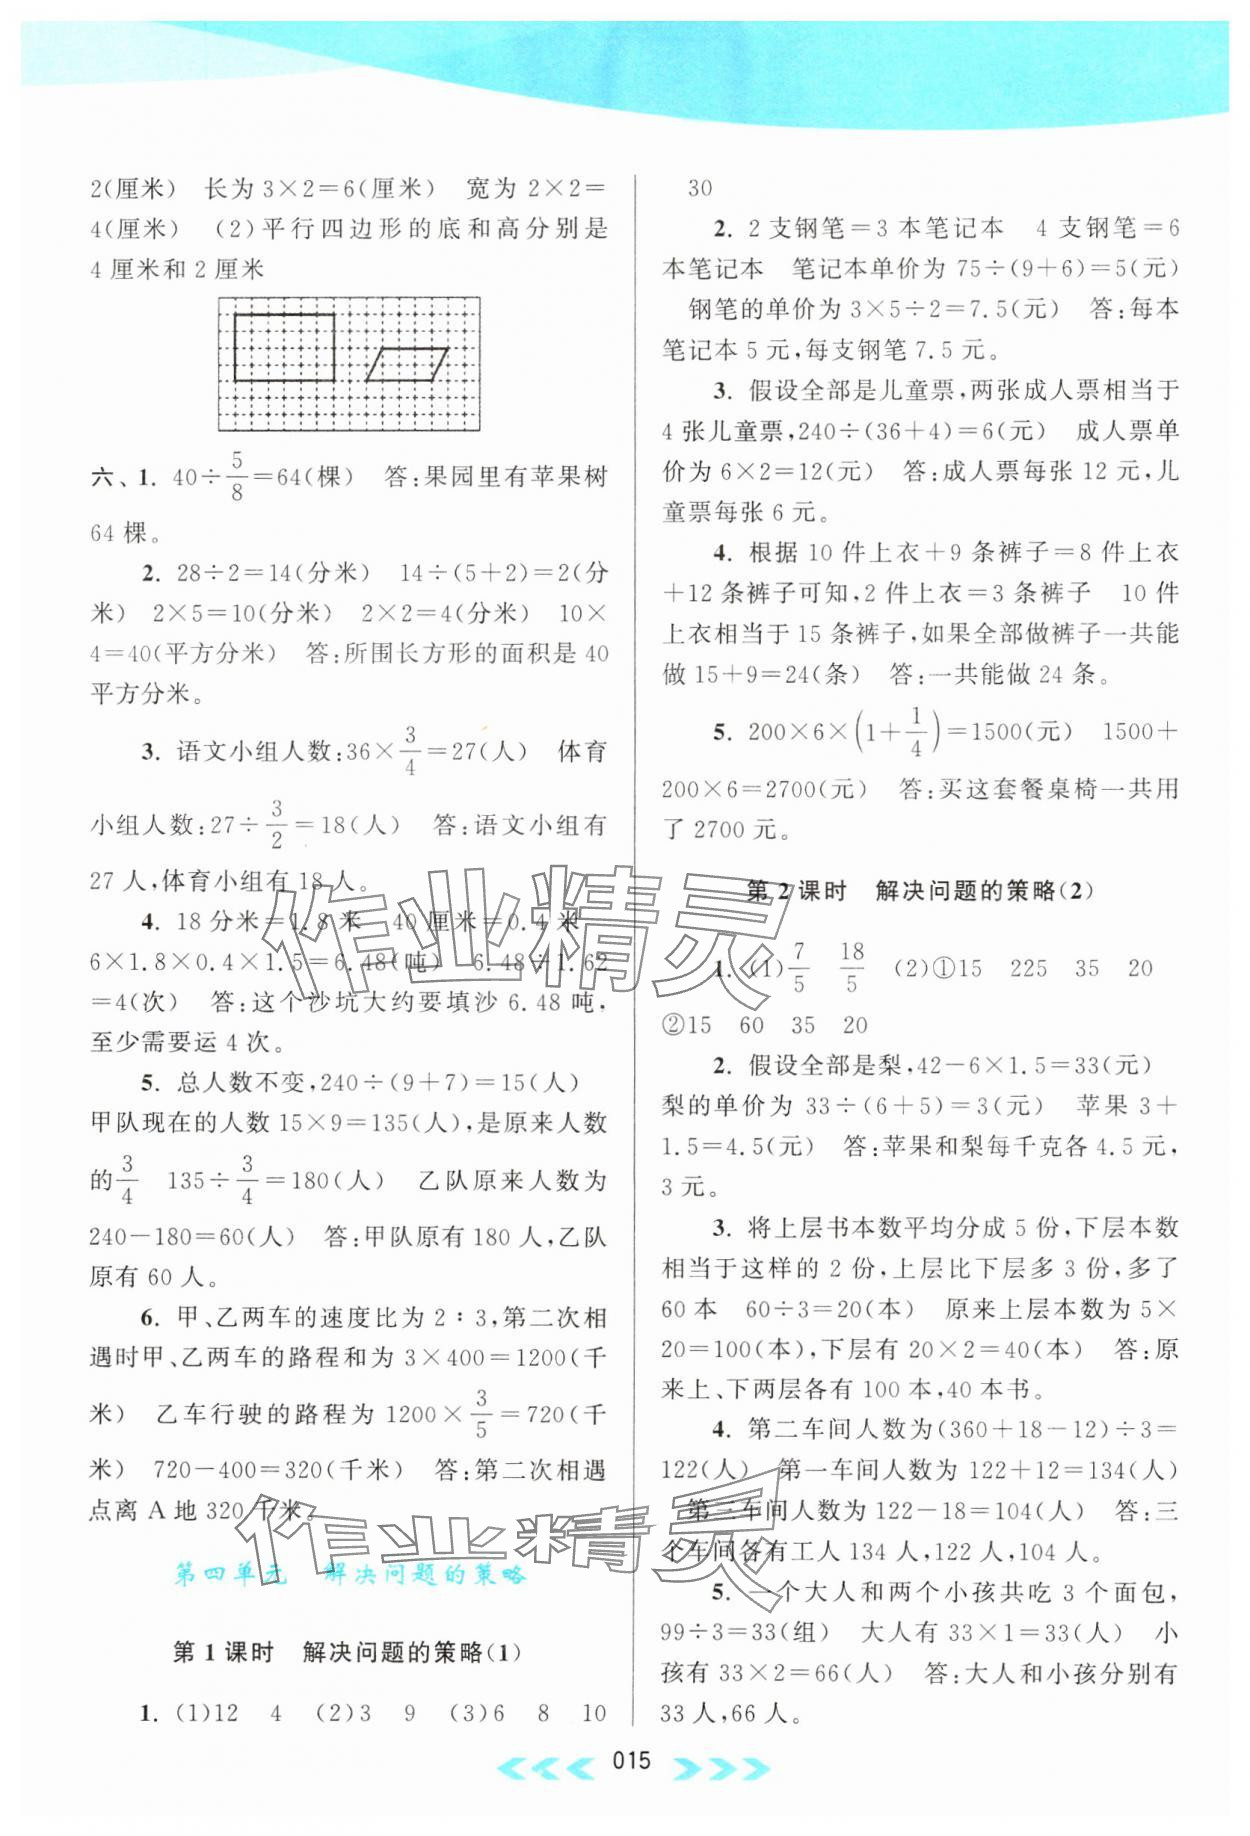 2(厘米) 长为 3×2=6(厘米) 宽为 2×2=
4(厘米) (2)平行四边形的底和高分别是
4 厘米和 2 厘米
六、1. 40÷5/8=64(棵) 答:果园里有苹果树
64 棵。
2. 28÷2=14(分米) 14÷(5+2)=2(分
米) 2×5=10(分米) 2×2=4(分米) 10×
4=40(平方分米) 答:所围长方形的面积是 40
平方分米。
3. 语文小组人数:36×3/4=27(人) 体育
小组人数:27÷3/2=18(人) 答:语文小组有
27 人,体育小组有 18 人。
4. 18 分米=1.8 米 40 厘米=0.4 米
6×1.8×0.4×1.5=6.48(吨) 6.48÷1.62
=4(次) 答:这个沙坑大约要填沙 6.48 吨,
至少需要运 4 次。
5. 总人数不变,240÷(9+7)=15(人)
甲队现在的人数 15×9=135(人),是原来人数
的3/4 135÷3/4=180(人) 乙队原来人数为
240-180=60(人) 答:甲队原有 180 人,乙队
原有 60 人。
6. 甲、乙两车的速度比为 2∶3,第二次相
遇时甲、乙两车的路程和为 3×400=1200(千
米) 乙车行驶的路程为 1200×3/5=720(千
米) 720-400=320(千米) 答:第二次相遇
点离 A 地 320 千米。
第四单元 解决问题的策略
第 1 课时 解决问题的策略(1)
1. (1)12 4 (2)3 9 (3)6 8 10
30
2. 2 支钢笔=3 本笔记本 4 支钢笔=6
本笔记本 笔记本单价为 75÷(9+6)=5(元)
钢笔的单价为 3×5÷2=7.5(元) 答:每本
笔记本 5 元,每支钢笔 7.5 元。
3. 假设全部是儿童票,两张成人票相当于
4 张儿童票,240÷(36+4)=6(元) 成人票单
价为 6×2=12(元) 答:成人票每张 12 元,儿
童票每张 6 元。
4. 根据 10 件上衣+9 条裤子=8 件上衣
+12 条裤子可知,2 件上衣=3 条裤子 10 件
上衣相当于 15 条裤子,如果全部做裤子一共能
做 15+9=24(条) 答:一共能做 24 条。
5. 200×6×(1+1/4)=1500(元) 1500+
200×6=2700(元) 答:买这套餐桌椅一共用
了 2700 元。
第 2 课时 解决问题的策略(2)
1. (1)7/5 18/5 (2)①15 225 35 20
②15 60 35 20
2. 假设全部是梨,42-6×1.5=33(元)
梨的单价为 33÷(6+5)=3(元) 苹果 3+
1.5=4.5(元) 答:苹果和梨每千克各 4.5 元,
3 元。
3. 将上层书本数平均分成 5 份,下层本数
相当于这样的 2 份,上层比下层多 3 份,多了
60 本 60÷3=20(本) 原来上层本数为 5×
20=100(本),下层有 20×2=40(本) 答:原
来上、下两层各有 100 本,40 本书。
4. 第二车间人数为(360+18-12)÷3=
122(人) 第一车间人数为 122+12=134(人)
第三车间人数为 122-18=104(人) 答:三
个车间各有工人 134 人,122 人,104 人。
5. 一个大人和两个小孩共吃 3 个面包,
99÷3=33(组) 大人有 33×1=33(人) 小
孩有 33×2=66(人) 答:大人和小孩分别有
33 人,66 人。
015
作业精灵
作业精灵